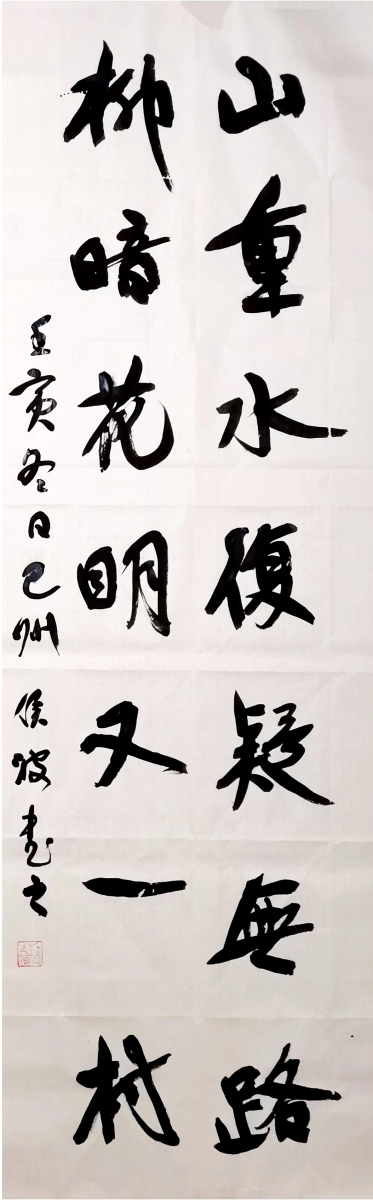 山重水復疑無路
柳暗花明又一村
壬寅冬日巴州侯波書之